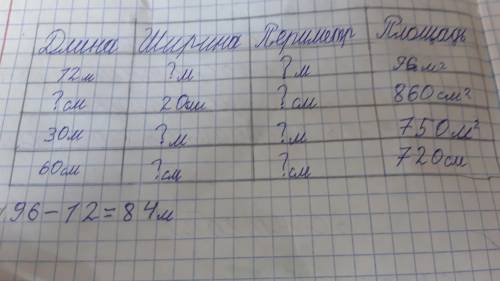 Длина Ширина Периметр Площадь
12м ?м ?м 96м²
?см 20см ?см 860см²
30м ?м ?м 750м²
60см ?см ?см 720см
96-12=84м